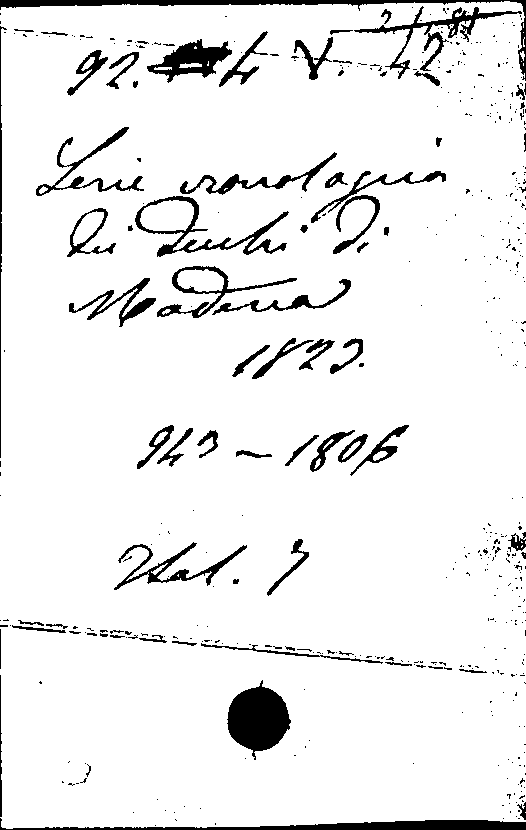 92. 4 V. 42
Serie cronologica
dei duchi di
Modena
1823.
943 - 1806
Ital. 7